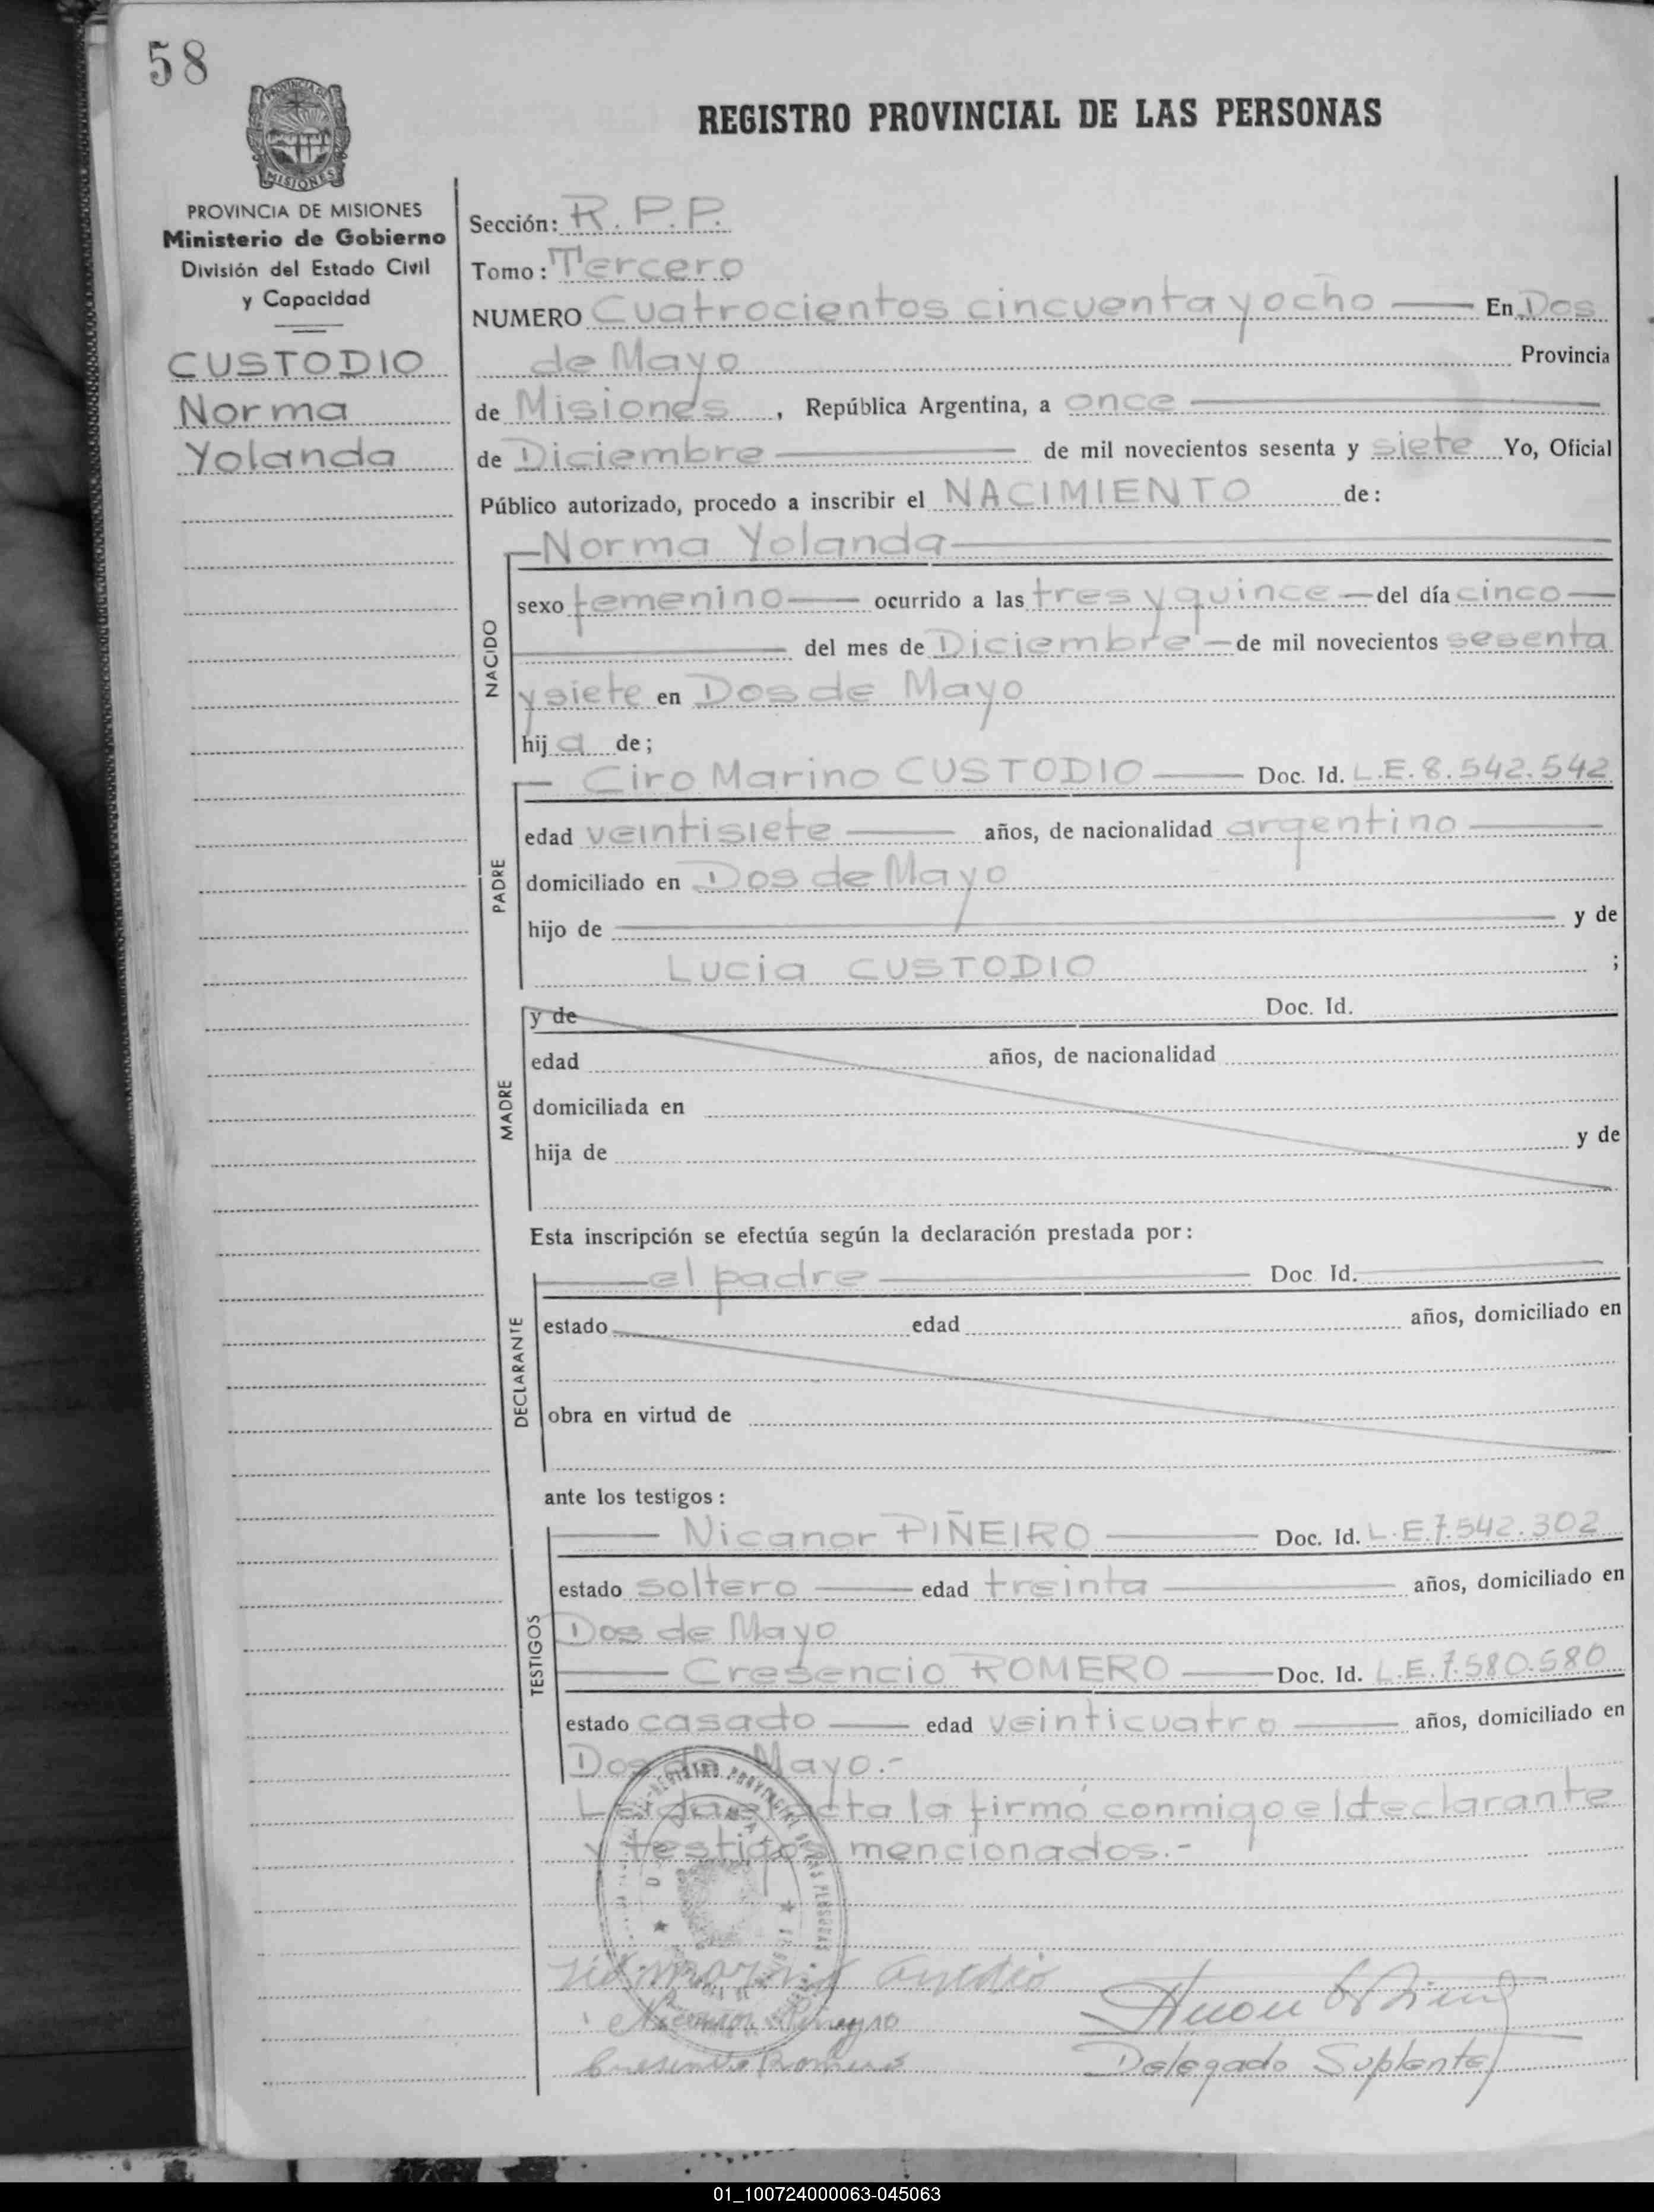 58
REGISTRO PROVINCIAL DE LAS PERSONAS
MISIONES
PROVINCIA DE MISIONES
Ministerio de Gobierno
División del Estado Civil
y Capacidad
CUSTODIO
Norma
Yolanda
Sección: R. P. P.
Tomo: Tercero
NUMERO Cuatrocientos cincuenta y ocho En Dos
de Mayo Provincia
de Misiones, República Argentina, a once
de Diciembre de mil novecientos sesenta y siete Yo, Oficial
Público autorizado, procedo a inscribir el NACIMIENTO de:
NACIDO
Norma Yolanda
sexo femenino ocurrido a las tres y quince del día cinco
del mes de Diciembre de mil novecientos sesenta
y siete en Dos de Mayo
hija de;
PADRE
Ciro Marino CUSTODIO Doc. Id. L.E. 8.542.542
edad veintisiete años, de nacionalidad argentino
domiciliado en Dos de Mayo
hijo de y de
Lucia CUSTODIO ;
MADRE
y de Doc. Id.
edad años, de nacionalidad
domiciliada en
hija de y de
Esta inscripción se efectúa según la declaración prestada por:
DECLARANTE
el padre Doc. Id.
estado edad años, domiciliado en
obra en virtud de
ante los testigos:
TESTIGOS
Nicanor PIÑEIRO Doc. Id. L.E. 7.542.302
estado soltero edad treinta años, domiciliado en
Dos de Mayo
Cresencio ROMERO Doc. Id. L.E. 7.580.580
estado casado edad veinticuatro años, domiciliado en
Dos de Mayo.-
Leida el acta la firmó conmigo el declarante
y testigos mencionados.-
Nicanor
Romero
Delegado Suplente
01_100724000063-045063